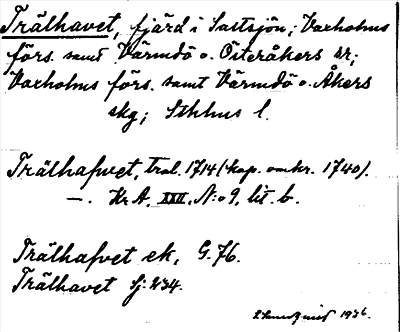 Trälhavet, fjärd i Saltsjön; Vaxholms
förs. samt Värmdö o. Österåkers sr;
Vaxholms förs. samt Värmdö o. Åkers
skg; Sthlms l.
Trälhafvet, tral. 1714 (kop. omkr. 1740).
—. Kr A, XXII, N:o 9, lit. b.
Trälhafvet ek, G. 76.
Trälhavet Sj: 234.
1936.